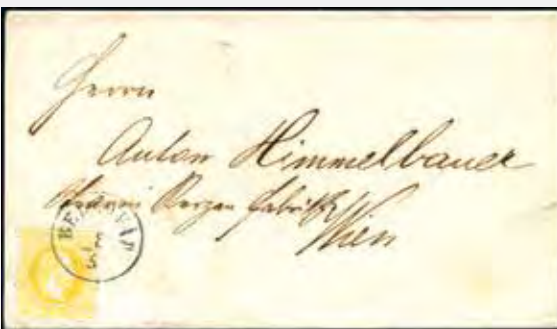 Herrn
Anton Himmelbauer
Kerzen Fabrik
Wien